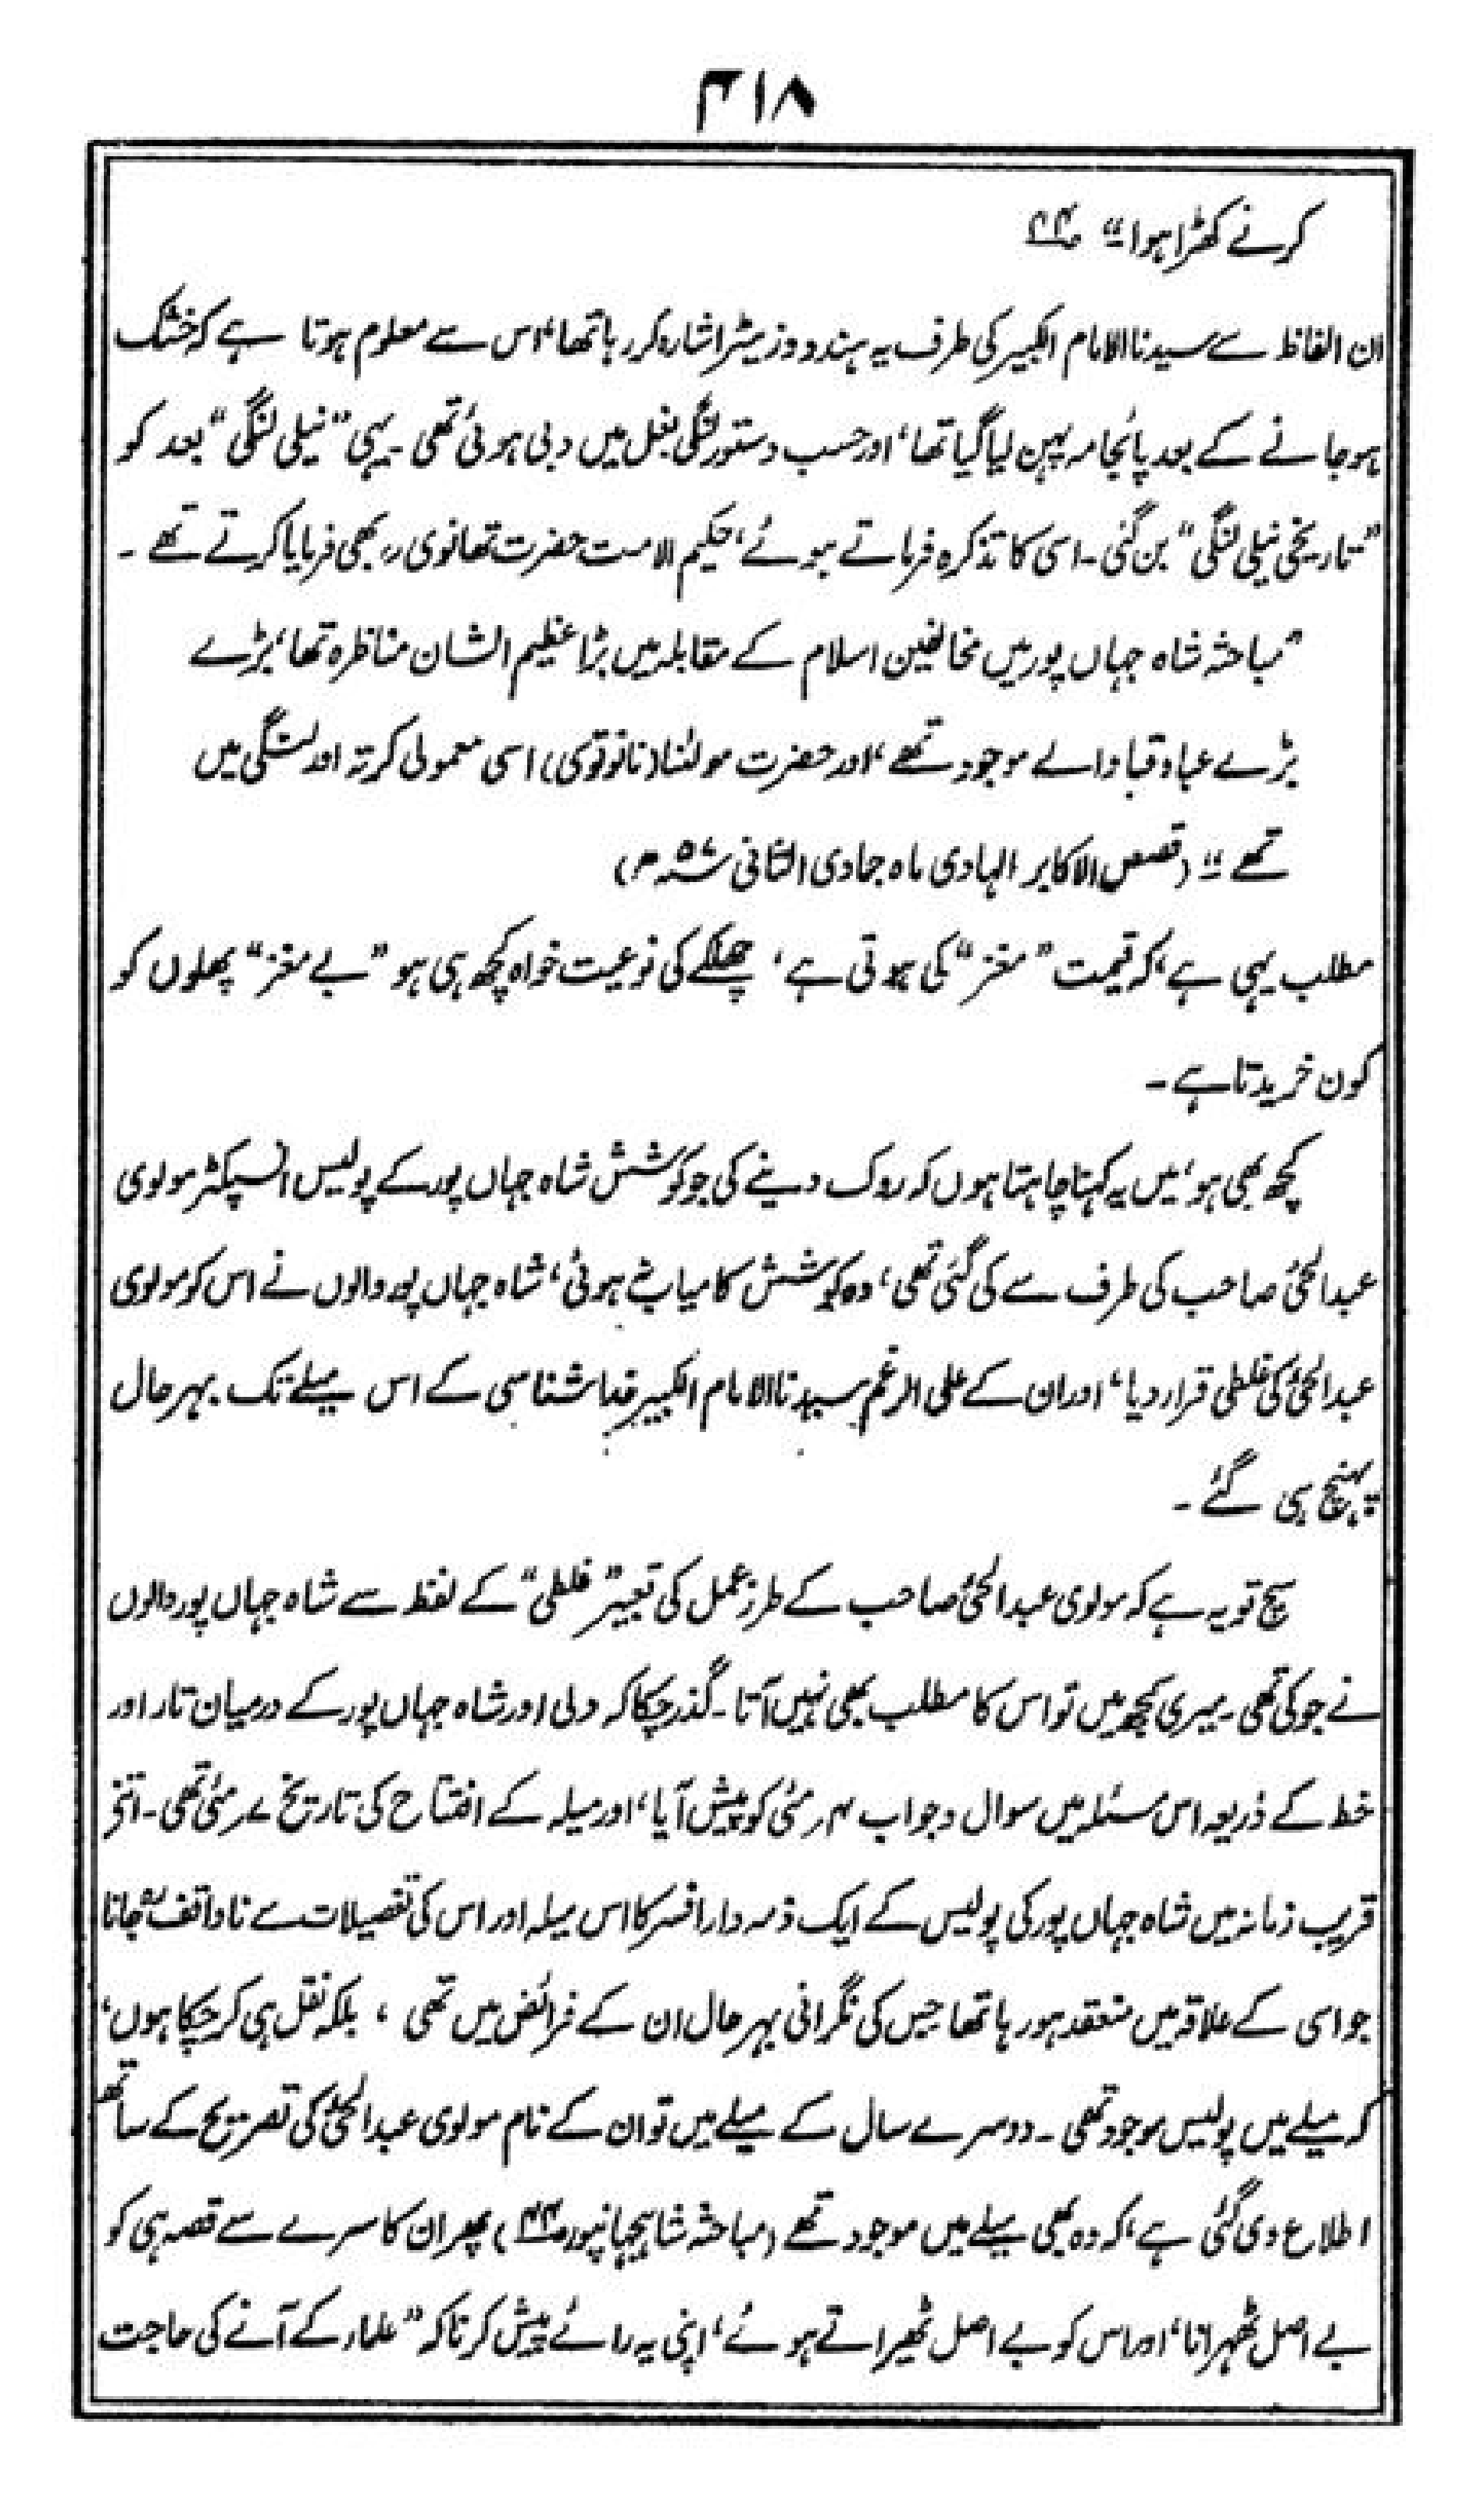 ۴۱۸
کرنے کھڑا ہوا ؎“
ان الفاظ سے سیدنا الامام الکبیر کی طرف یہ ہندو وزیٹر اشارہ کر رہا تھا، اس سے معلوم ہوتا ہے کہ خشک
ہو جانے کے بعد پائجامہ پہن لیا گیا تھا، اور حسب دستور لنگی بغل میں دبی ہوئی تھی ۔ یہی ”نیلی لنگی“ بعد کو
”تاریخی نیلی لنگی“ بن گئی ۔ اسی کا تذکرہ فرماتے ہوئے، حکیم الامت حضرت تھانوی رہ بھی فرمایا کرتے تھے ۔
”مباحثہ شاہ جہاں پور میں مخالفین اسلام کے مقابلہ میں بڑا عظیم الشان مناظرہ تھا، بڑے
بڑے عباد قبا والے موجود تھے، اور حضرت مولٰنا (نانوتوی) اسی معمولی کرتہ اور لنگی میں
تھے “ (قصص الاکابر الہادی ماہ جمادی الثانی ۵۷ھ)
مطلب یہی ہے، کہ قیمت ”مغز“ کی ہوتی ہے، چھلکے کی نوعیت خواہ کچھ ہی ہو ”بے مغز“ پھلوں کو
کون خریدتا ہے ۔
کچھ بھی ہو، میں یہ کہنا چاہتا ہوں کہ روک دینے کی جو کوشش شاہ جہاں پور کے پولیس انسپکٹر مولوی
عبدالحیٔ صاحب کی طرف سے کی گئی تھی، وہ کوشش کامیاب نہ ہوئی، شاہ جہاں پور والوں نے اس کو مولوی
عبدالحیٔ کی غلطی قرار دیا، اور ان کے علی الرغم سیدنا الامام الکبیر خدا شناسی کے اس میلے تک بہر حال
پہنچ ہی گئے ۔
سچ تو یہ ہے کہ مولوی عبدالحیٔ صاحب کے طرز عمل کی تعبیر ”غلطی“ کے لفظ سے شاہ جہاں پور والوں
نے جو کی تھی ۔ میری سمجھ میں تو اس کا مطلب بھی نہیں آتا ۔ گذر چکا کہ دلی اور شاہ جہاں پور کے درمیان تار اور
خط کے ذریعہ اس مسئلہ میں سوال وجواب ۴؍ مئی کو پیش آیا، اور میلہ کے افتتاح کی تاریخ ۷؍ مئی تھی ۔ اتنے
قریب زمانہ میں شاہ جہاں پور کی پولیس کے ایک ذمہ دار افسر کا اس میلہ اور اس کی تفصیلات سے ناواقف رہ جانا
جو اسی کے علاقہ میں منعقد ہو رہا تھا جس کی نگرانی بہر حال ان کے فرائض میں تھی ، بلکہ نقل ہی کر چکا ہوں،
کہ میلے میں پولیس موجود تھی ۔ دوسرے سال کے میلے میں تو ان کے نام مولوی عبدالحیٔ کی تصریح کے ساتھ
اطلاع دی گئی ہے، کہ وہ بھی میلے میں موجود تھے (مباحثہ شاہجہانپور) پھر ان کا سرے سے قصہ ہی کو
بے اصل ٹھہرانا، اور اس کو بے اصل ٹھیراتے ہوئے، اپنی یہ رائے پیش کرنا کہ ”علماء کے آنے کی حاجت